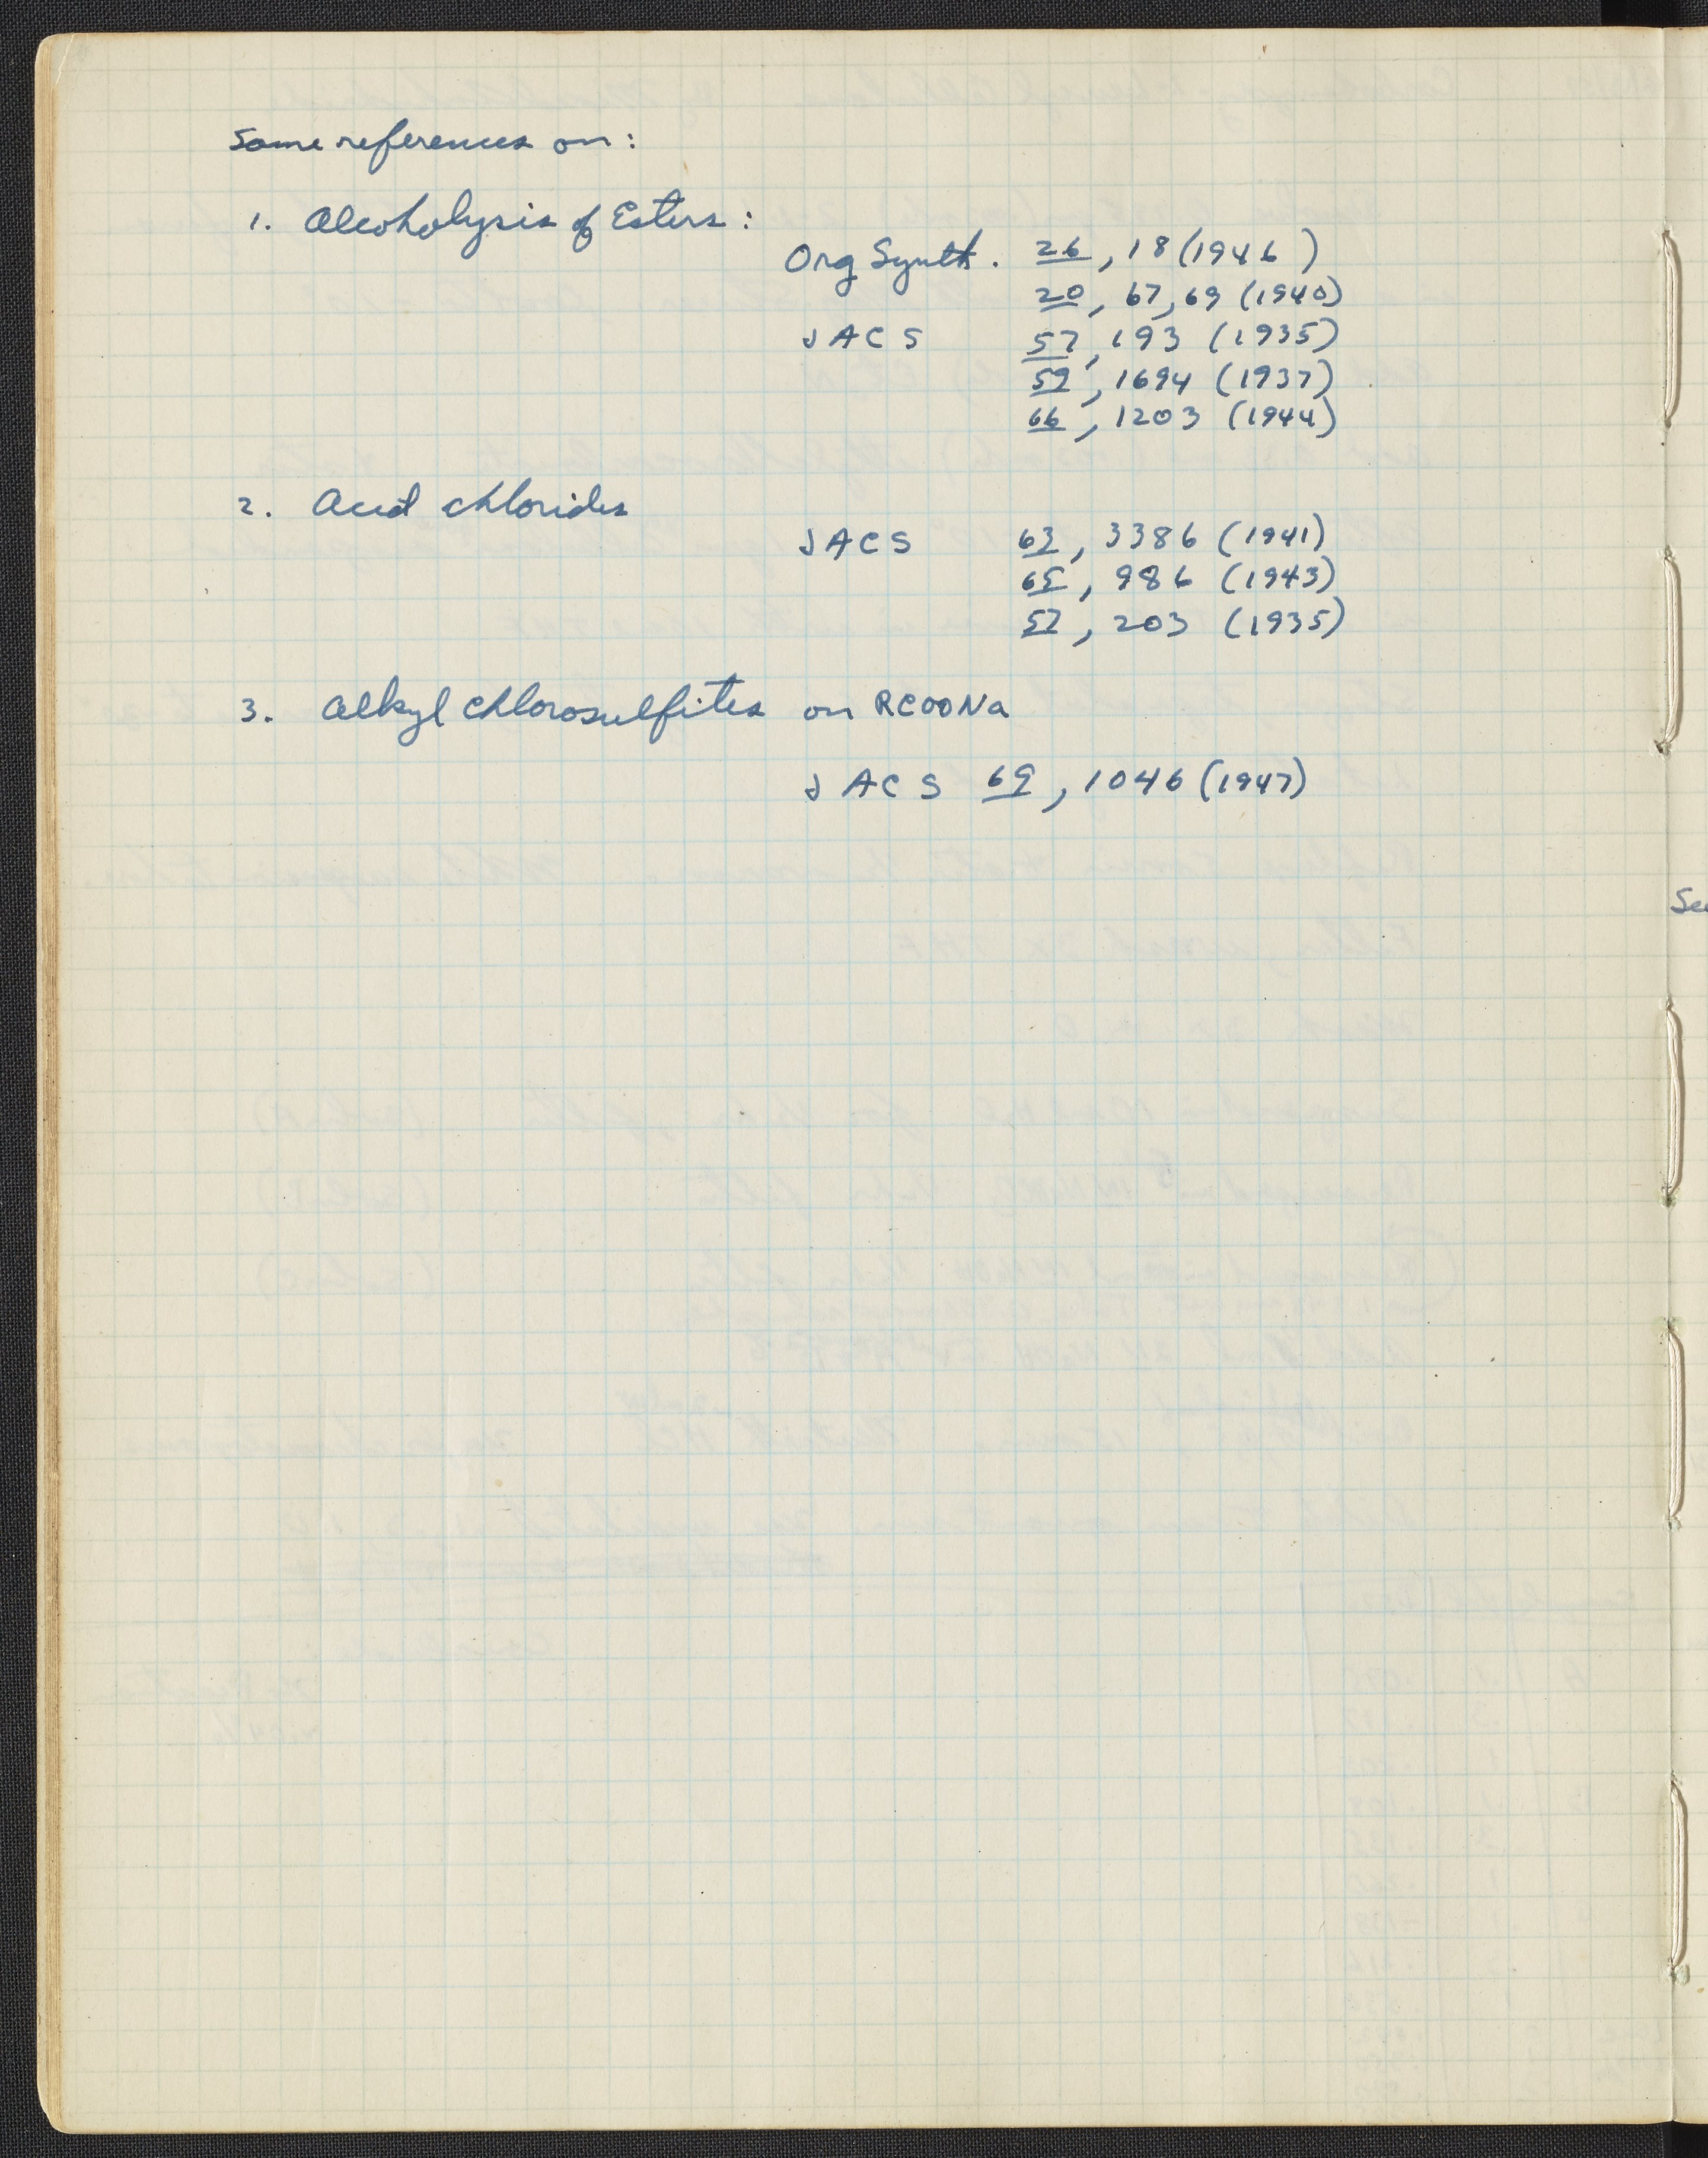 Some references on:
1. Alcoholysis of Esters:
Org Synth. 26, 18 (1946)
20, 67, 69 (1940)
JACS 57, 193 (1935)
59, 1694 (1937)
66, 1203 (1944)
2. Acid chlorides
JACS 63, 3386 (1941)
65, 986 (1943)
57, 203 (1935)
3. Alkyl chlorosulfites on RCOONa
JACS 69, 1046 (1947)